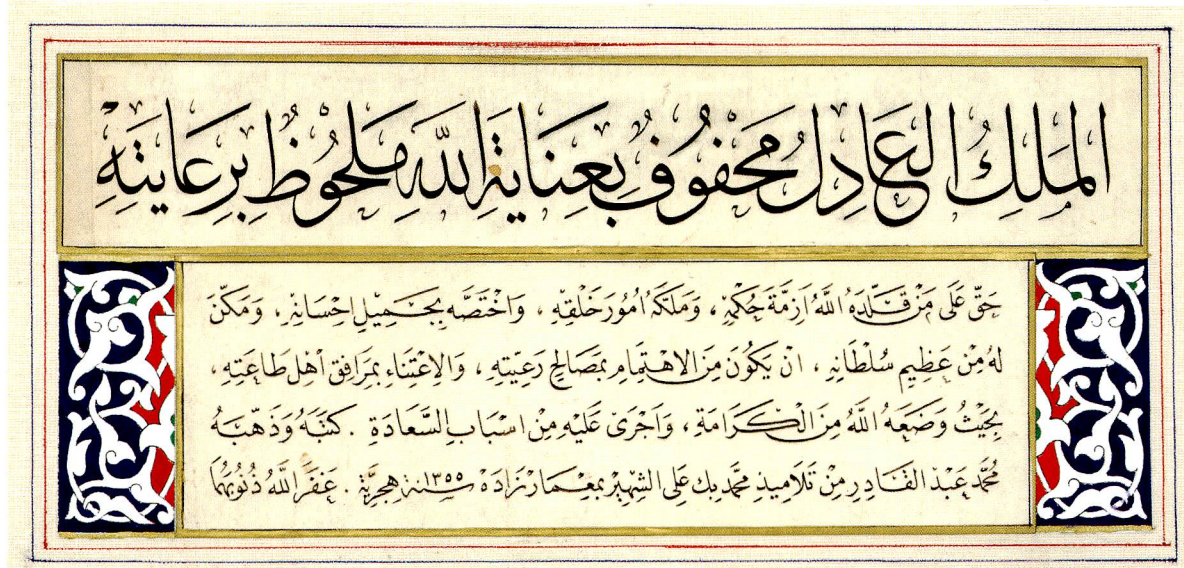 الْمَلِكُ الْعَادِلُ مَحْفُوفٌ بِعِنَايَةِ اللَّهِ مَلْحُوظٌ بِرِعَايَتِهِ
حَقٌّ عَلَى مَنْ قَلَّدَهُ اللَّهُ اَزِمَّةَ حُكْمِهِ ، وَمَلَّكَهُ اُمُورَ خَلْقِهِ ، وَاخْتَصَّهُ بِجَمِيلِ اِحْسَانِهِ ، وَمَكَّنَ
لَهُ مِنْ عَظِيمِ سُلْطَانِهِ ، اَنْ يَكُونَ مِنَ الِاهْتِمَامِ بِمَصَالِحِ رَعِيَّتِهِ ، وَالِاعْتِنَاءِ بِمَرَافِقِ اَهْلِ طَاعَتِهِ ،
بِحَيْثُ وَضَعَهُ اللَّهُ مِنَ الْكَرَامَةِ ، وَاَجْرَى عَلَيْهِ مِنْ اَسْبَابِ السَّعَادَةِ . كَتَبَهُ وَذَهَّبَهُ
مُحَمَّد عَبْدُ الْقَادِرِ مِنْ تَلَامِيذِ مُحَمَّد بِك عَلِي الشَّهِيرْ بِمِعْمَارْ زَادَهْ سنة ١٣٥٥ هِجْرِيَّة . غَفَرَ اللَّهُ ذُنُوبَهُمَا